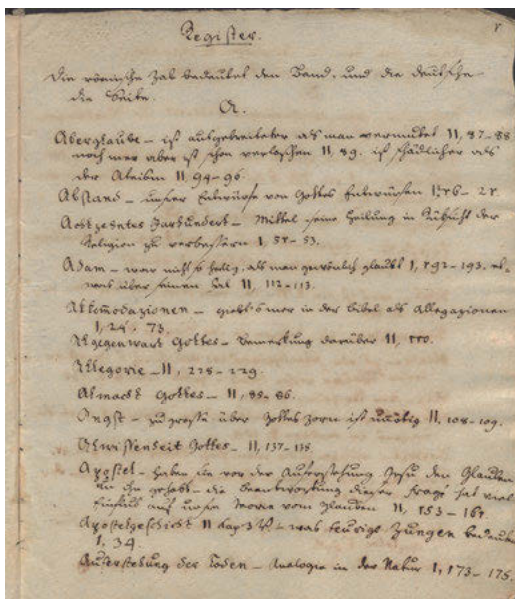 Register.
Die römische Zal bedeutet den Band, und die deutsche
die Seite.
A.
Aberglaube – ist ausgebreiteter als man vermutet II, 87-88
noch mer aber ist schon verloschen II, 89. ist schädlicher als
der Ateism II, 94-96.
Abstand – unsrer Entwürfe von Gottes Entwürfen
Achtzehntes Jarhundert – Mittel seine Heilung in Rüksicht der
Religion zu verbessern I,
Adam – war nicht so heilig, als man gewönlich glaubt I, 192-193. et-
was über seinen Fal II, 112-113.
Akkomodazionen – giebt's mer in der Bibel als Allegazionen
I, 73.
Algegenwart Gottes – Bemerkung darüber II,
Allegorie – II, 228-229.
Almacht Gottes – II, 85-86.
Angst – zu grosse über Gottes Zorn ist unnötig II, 108-109.
Alwissenheit Gottes – II, 137-138
Apostel – haben sie vor der Auferstehung Jesu den Glauben
an ihn gehabt – die Beantwortung dieser Frage hat viel
Einflus auf unsre Teorie vom Glauben II, 153-161.
Apostelgeschicht II Kap 3 V – was feurige Zungen bedeuten
I, 34.
Auferstehung der Toden – Analogie in der Natur I, 173-175.